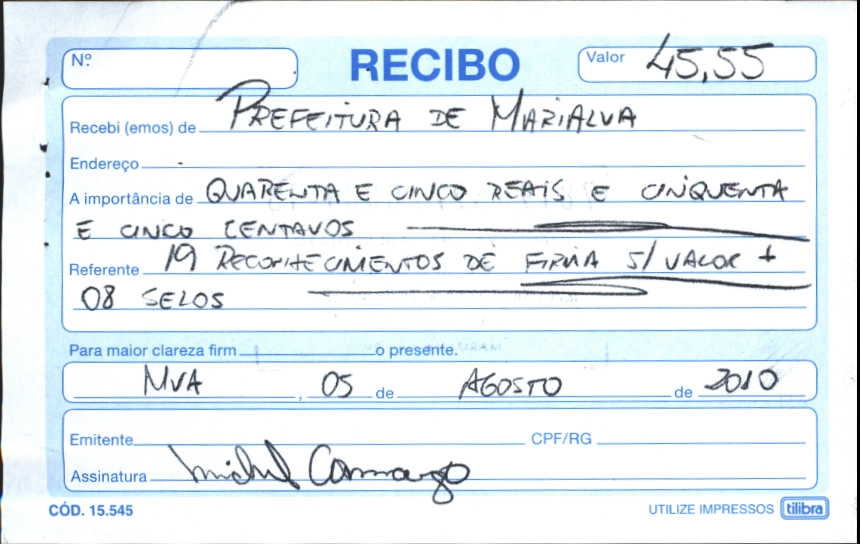 Nº RECIBO Valor 45,55
Recebi (emos) de PREFEITURA DE MARIALVA
Endereço
A importância de QUARENTA E CINCO REAIS E CINQUENTA
E CINCO CENTAVOS
Referente 19 RECONHECIMENTOS DE FIRMA S/ VALOR +
08 SELOS
Para maior clareza firm o presente.
MVA , 05 de AGOSTO de 2010
Emitente CPF/RG
Assinatura Michel Camargo
CÓD. 15.545 UTILIZE IMPRESSOS tilibra